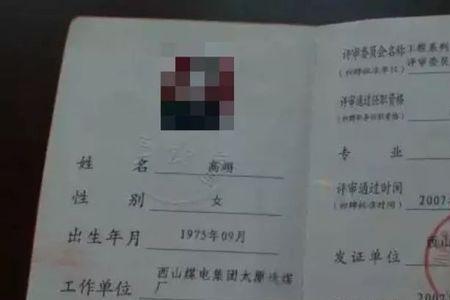 姓 名 高翊
性 别 女
出生年月 1975年09月
工作单位 西山煤电集团太原选煤
厂
评审委员会名称 工程系列
(初聘批准单位) 评审委员
评审通过任职资格
(初聘职务任职资格)
专 业
评审通过时间
(初聘批准时间) 2007
发证单位 西山
2007